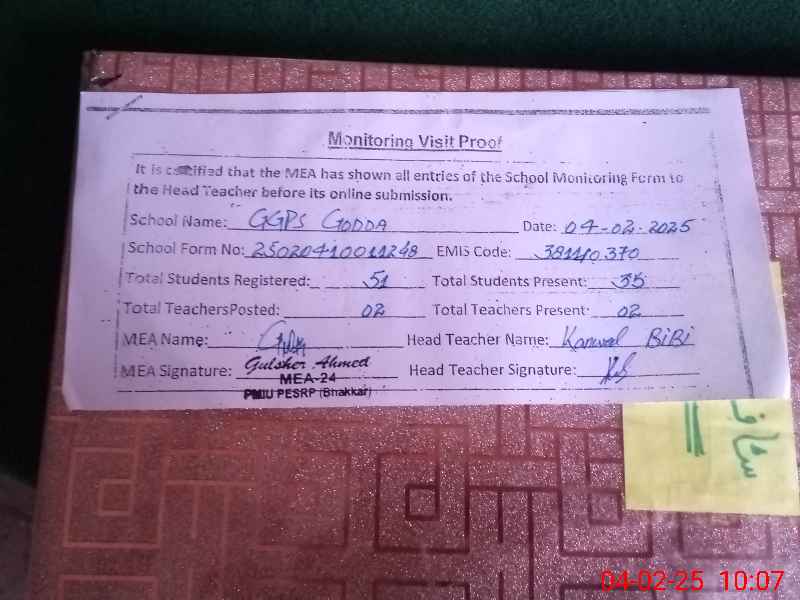 Monitoring Visit Proof
It is certified that the MEA has shown all entries of the School Monitoring Form to
the Head Teacher before its online submission.
School Name: GGPS GODDA Date: 04-02-2025
School Form No: 25020410011248 EMIS Code: 38110370
Total Students Registered: 51 Total Students Present: 35
Total TeachersPosted: 02 Total Teachers Present: 02
MEA Name: Head Teacher Name: Kanwal BiBi
MEA Signature: Gulsher Ahmed Head Teacher Signature:
MEA-24
PMIU PESRP (Bhakkar)
04-02-25 10:07